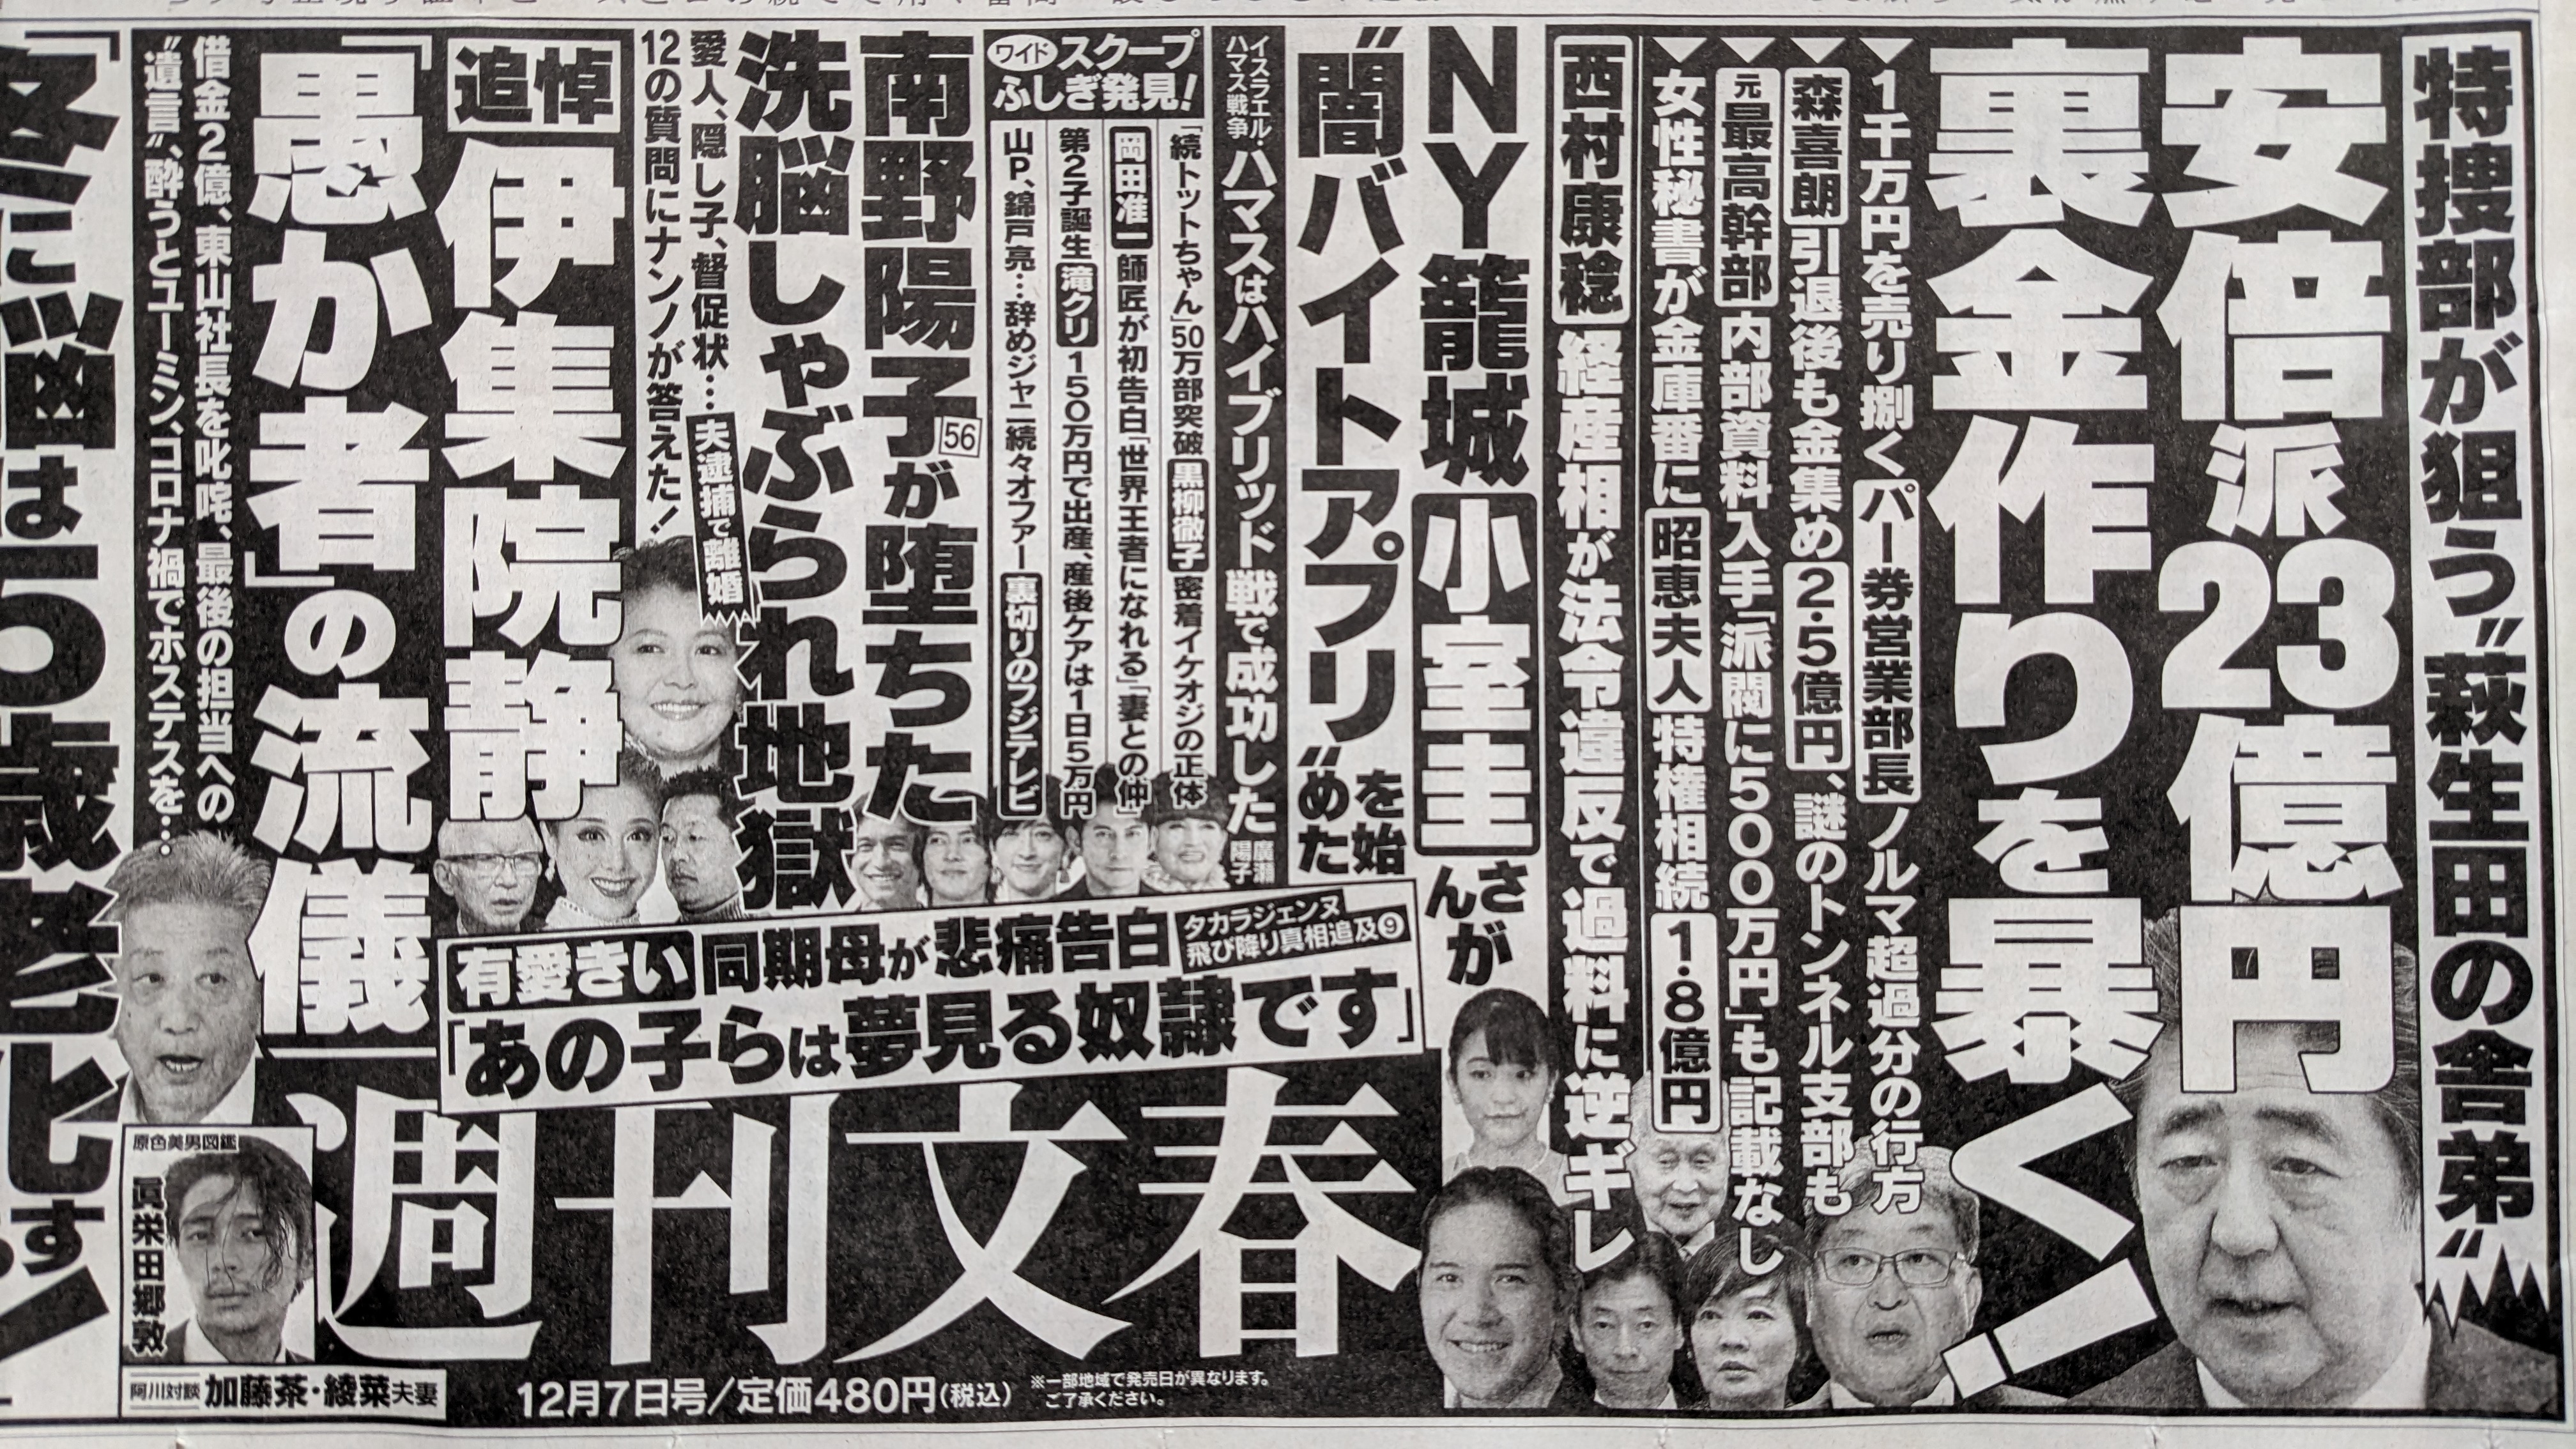 特捜部が狙う〝萩生田の舎弟〟
安倍派23億円
裏金作りを暴く!
▼1千万円を売り捌くパー券営業部長 ノルマ超過分の行方
▼森喜朗 引退後も金集め2・5億円、謎のトンネル支部も
▼元最高幹部 内部資料入手「派閥に500万円」も記載なし
▼女性秘書が金庫番に 昭恵夫人 特権相続1・8億円
西村康稔 経産相が法令違反で過料に逆ギレ
NY籠城 小室圭さんが
〝闇バイトアプリ〟を始めた
イスラエル・ハマス戦争 ハマスはハイブリッド戦で成功した 廣瀬陽子
ワイド スクープふしぎ発見!
「続トットちゃん」50万部突破 黒柳徹子 密着イケオジの正体
岡田准一 師匠が初告白「世界王者になれる」「妻との仲」
第2子誕生 滝クリ 150万円で出産、産後ケアは1日5万円
山P、錦戸亮…辞めジャニ続々オファー 裏切りのフジテレビ
南野陽子56が堕ちた
洗脳しゃぶられ地獄
愛人、隠し子、督促状… 夫逮捕で離婚
12の質問にナンノが答えた!
追悼 伊集院静
「愚か者」の流儀
借金2億、東山社長を叱咤、最後の担当への
〝遺言〟、酔うとユーミン、コロナ禍でホステスを…
有愛きい 同期母が悲痛告白 タカラジェンヌ飛び降り真相追及❾
「あの子らは夢見る奴隷です」
週刊文春
原色美男図鑑
眞栄田郷敦
阿川対談 加藤茶・綾菜夫妻
12月7日号/定価480円(税込)
※一部地域で発売日が異なります。
ご了承ください。